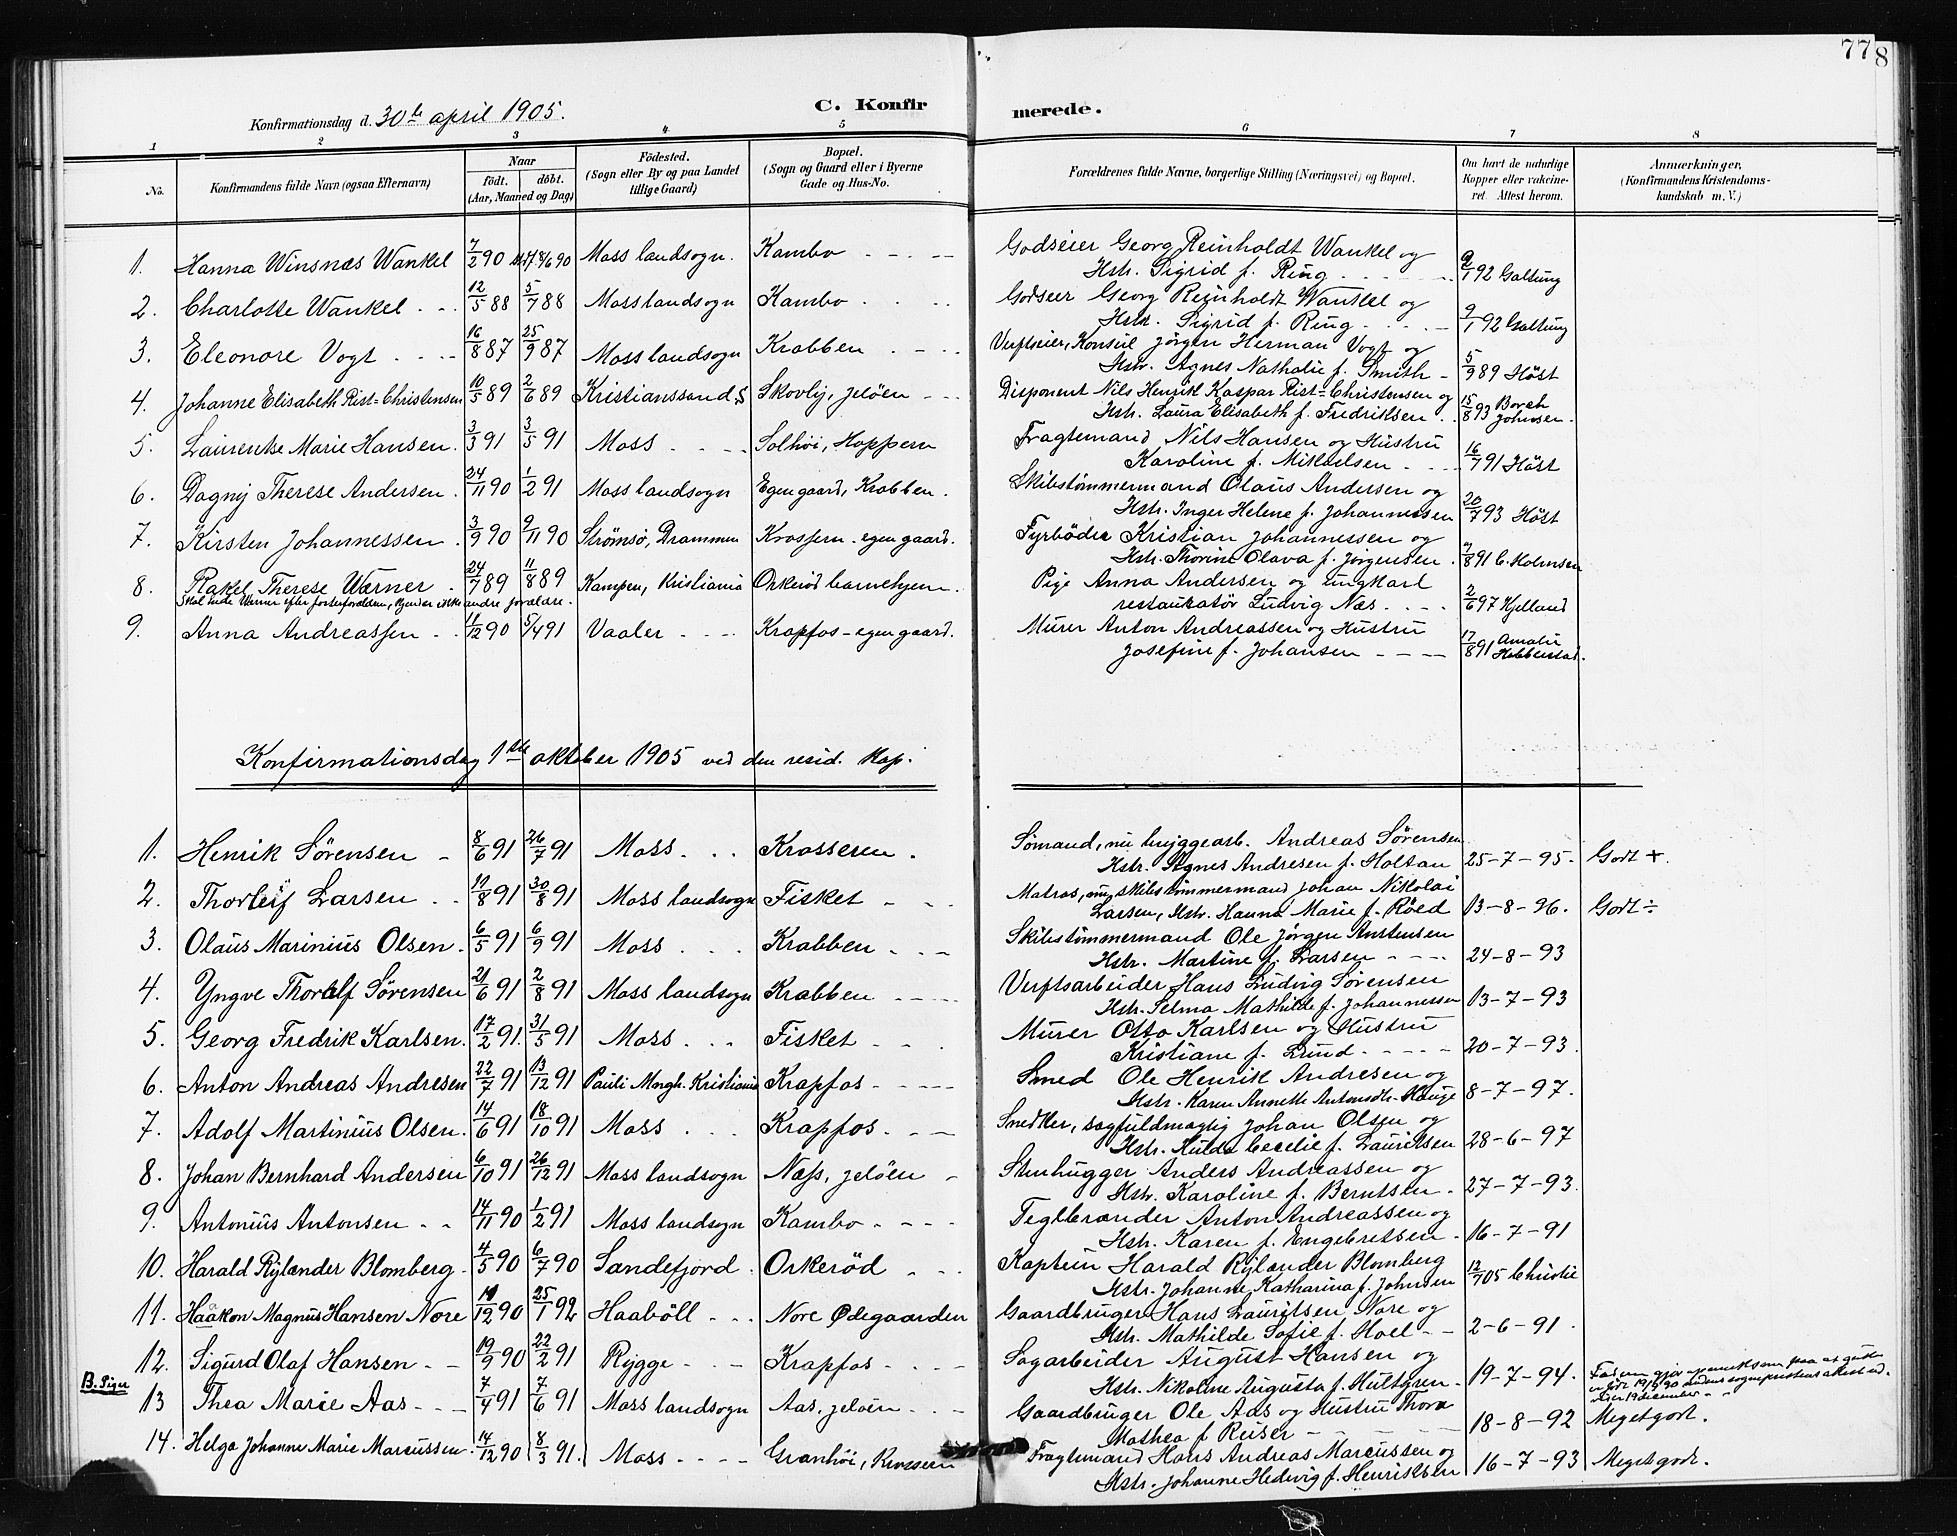 778
C. Konfirmerede.
Konfirmationsdag d. 30te april 1905.
1 2 3 4 5 6 7 8
No. Konfirmandens fulde Navn (ogsaa Efternavn) Naar födt. döbt. (Aar, Maaned og Dag) Födested. (Sogn eller By og paa Landet tillige Gaard) Bopæl. (Sogn og Gaard eller i Byerne Gade og Hus-No. Forældrenes fulde Navne, borgerlige Stilling (Næringsvei) og Bopæl. Om havt de naturlige Kopper eller vakcineret. Attest herom. Anmærkninger. (Konfirmandens Kristendomskundskab m. V.)
1. Hanna Winsnæs Wankel 7/2 90 8/6 90 Moss landsogn. Kambo Godseier Georg Reinholdt Wankel og
Hstr. Sigrid f. Ring 9/1 92 Galtung
2. Charlotte Wankel 12/5 88 5/7 88 Moss landsogn Kambo Godseier Georg Reinholdt Wankel og
Hstr. Sigrid f. Ring 9/1 92 Galtung
3. Eleonore Vogt 16/8 87 25/9 87 Moss landsogn Krabben Verftseier, Konsul Jörgen Herman Vogt og
Hstr. Agnes Nathalie f. Smith 5/9 89 Höst
4. Johanne Elisabeth Rist-Christensen 10/5 89 2/6 89 Kristianssand S Skovly, Jelöen Disponent Nils Henrik Kaspar Rist-Christensen og
Hstr. Laura Elisabeth f. Fredriksen 15/8 93 Borch Johnsen.
5. Laurentse Marie Hansen 3/3 91 3/5 91 Moss Solhöi, Hoppern Fragtemand Nils Hansen og Hustru
Karoline f. Mikaelsen 16/7 91 Höst
6. Dagny Therese Andersen 24/11 90 1/2 91 Moss landsogn Egen gaard, Krabben. Skibstömmermand Olaus Andersen og
Hstr. Inger Helene f. Johannessen 20/7 93 Höst
7. Kirsten Johannessen 3/9 90 9/11 90 Strömsö, Drammen Krossern - egen gaard. Fyrböder Kristian Johannessen og
Hstr. Thorine Olava f. Jörgensen. 7/8 91 C. Holmsen
8. Rakel Therese Werner 24/7 89 11/8 89 Kampen, Kristiania Orkeröd barnehjem. Pige Anna Andersen og ungkarl
Skal hede Werner efter fosterforældre, kjender ikke andre forældre. restauratör Ludvig Næs 2/6 97 Kjelland
9. Anna Andreassen 11/12 90 5/4 91 Vaaler Krapfos - egen gaard. Murer Anton Andreassen og Hustru
Josefine f. Johansen 17/8 91 Amalie
Konfirmationsdag 1ste oktober 1905 ved den resid. Kap.
1. Henrik Sørensen 8/6 91 26/7 91 Moss. Krosseren. Sömand, nu bryggearb. Andreas Sørensen
Hstr. Agnes Andresen f. Holtan 25-7-95. Godt +.
2. Thorleif Larsen 10/8 91 30/8 91 Moss landsogn Fisket Matros, nu skibstömmermand Johan Nikolai
Larsen, Hstr. Hanna Marie f. Röed 13-8-96. Godt ÷
3. Olaus Marinius Olsen 6/5 91 6/9 91 Moss Krabben Skibstömmermand Ole Jörgen Anstensen
Hstr. Martine f. Larsen 24-8-93
4. Yngve Thoralf Sörensen 21/6 91 2/8 91 Moss landsogn Krabben Verftsarbeider Hans Ludvig Sörensen
Hstr. Selma Mathilde f. Johannessen 13-7-93
5. Georg Fredrik Karlsen. 17/2 91. 31/5 91 Moss Fisket Murer Otto Karlsen og Hustru
Kristiane f. Lund 20-7-93.
6. Anton Andreas Andresen 22/7 91 13/12 91 Pauli Mngh. Kristiania Krapfos Smed Ole Henrik Andresen og
Hstr. Karen Annette Antonsdtr. Hauge 8-7-97.
7. Adolf Martinius Olsen. 14/6 91 18/10 91 Moss Krapfos Snedker, sagfuldmægtig Johan Olsen og
Hstr. Hulda Cecelie f. Lauritsen 28-6-97
8. Johan Bernhard Andersen 6/10 91 26/12 91 Moss landsogn Næs, Jelöen Stenhugger Anders Andreassen og
Hstr. Karoline f. Berntsen. 27-7-93.
9. Antonius Antonsen 14/11 90 1/2 91 Moss landsogn Kambo Teglbrænder Anton Andreassen og
Hstr. Karen f. Engebretsen 16-7-91
10. Harald Rylander Blomberg. 4/5 90 6/7 90 Sandefjord Orkeröd Kaptein Harald Rylander Blomberg
Hstr. Johanne Katharina f. Johnsen 12/7 05 Christie
11. Haakon Magnus Hansen Nore 10/12 90 25/1 92 Haaböll Nore Ødegaarden Gaardbruger Hans Lauritsen Nore og
Hstr. Mathilde Sofie f. Hoel 2-6-91.
12. Sigurd Olaf Hansen 19/9 90 22/2 91 Rygge Krapfos Sagarbeider August Hansen og
Hstr. Nikoline Augusta f. Hultgren 19-7-94. Faderen gjör opmerksom paa at gutten er födt 19/9 90 sognepræstens attest siger 19 december
B. Piger
13 Thea Marie Aas 7/4 91 7/6 91 Moss landsogn Aas, Jelöen Gaardbruger Ole Aas og Hustru Thora
Mathea f Reiser 18-8-92 Meget godt.
14. Helga Johanne Marie Marcussen. 14/12 90 8/3 91. Moss Granhöi, Krosseren Fragtemand Hans Andreas Marcussen og
Hstr. Johanne Hedevig f. Henriksen 16-7-93 Meget godt.